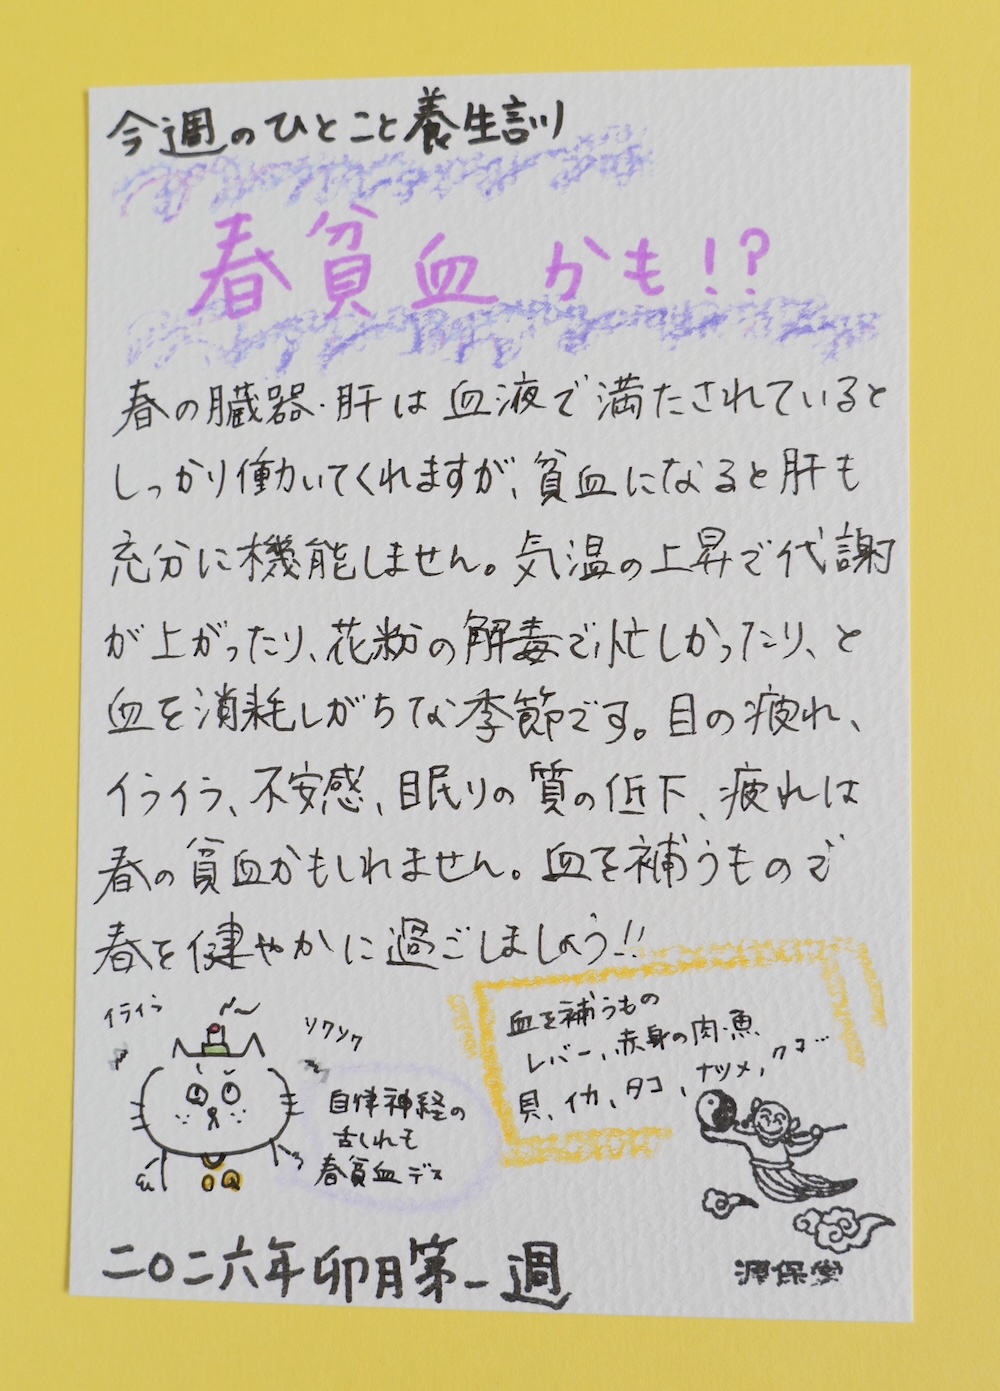 今週のひとこと養生訓
春貧血かも!?
春の臓器・肝は血液で満たされていると
しっかり働いてくれますが、貧血になると肝も
充分に機能しません。気温の上昇で代謝
が上がったり、花粉の解毒で忙しかったり、と
血を消耗しがちな季節です。目の疲れ、
イライラ、不安感、眠りの質の低下、疲れは
春の貧血かもしれません。血を補うもので
春を健やかに過ごしましょう!!
イライラ
ソワソワ
自律神経の
乱れも
春貧血デス
血を補うもの
レバー、赤身の肉・魚
貝、イカ、タコ、ナツメ、クコ…
二〇二六年卯月第一週
源保堂